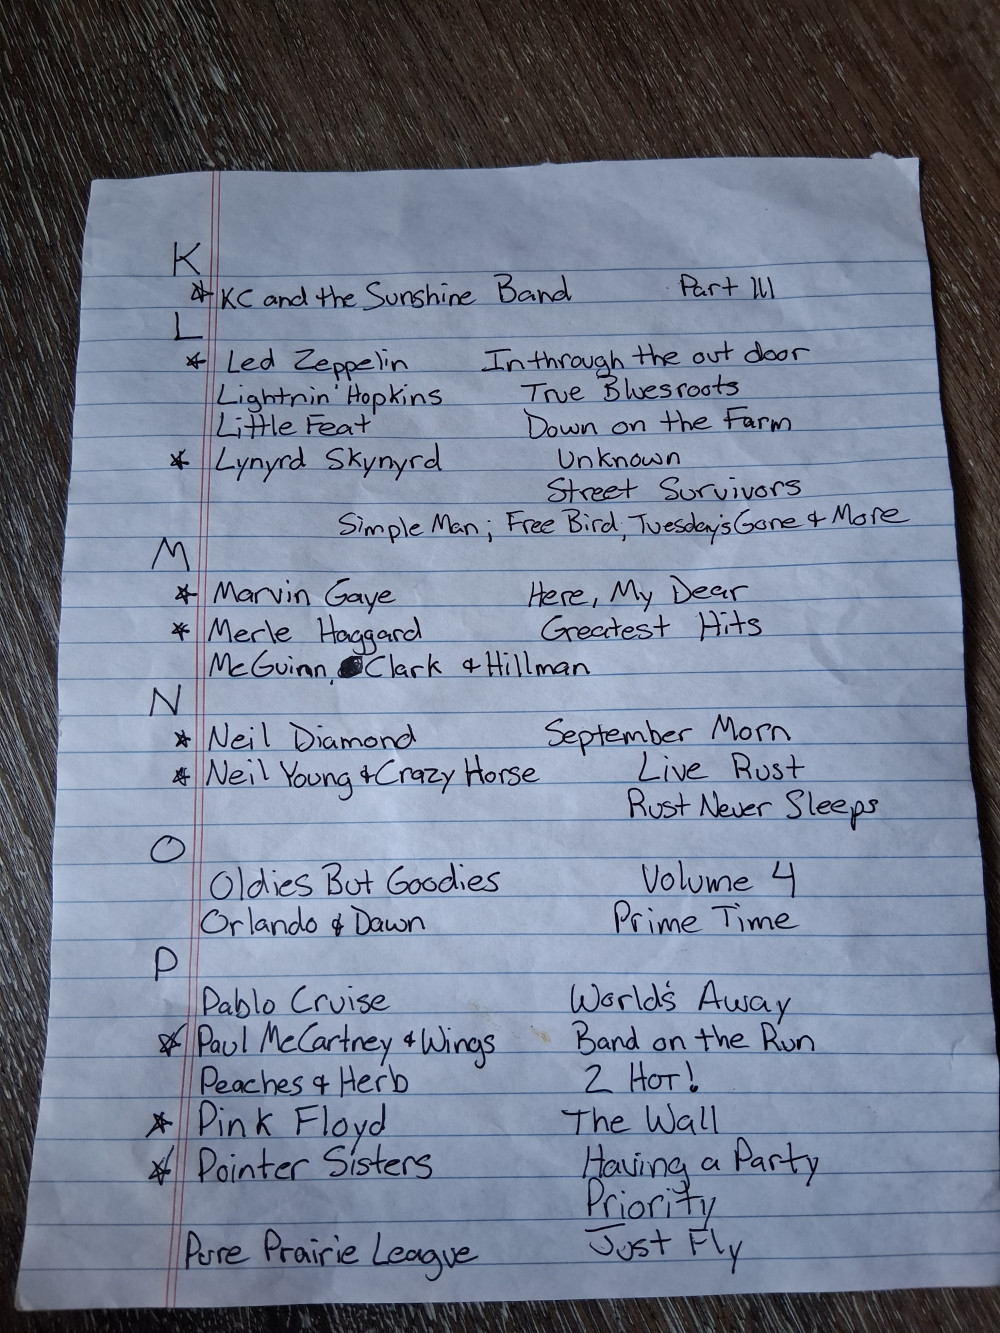 K
☆ KC and the Sunshine Band Part III
L
☆ Led Zeppelin In through the out door
Lightnin' Hopkins True Bluesroots
Little Feat Down on the Farm
☆ Lynyrd Skynyrd Unknown
Street Survivors
Simple Man; Free Bird; Tuesday's Gone & More
M
☆ Marvin Gaye Here, My Dear
☆ Merle Haggard Greatest Hits
McGuinn, Clark & Hillman
N
☆ Neil Diamond September Morn
☆ Neil Young & Crazy Horse Live Rust
Rust Never Sleeps
O
Oldies But Goodies Volume 4
Orlando & Dawn Prime Time
P
Pablo Cruise World's Away
☆ Paul McCartney & Wings Band on the Run
Peaches & Herb 2 Hot!
☆ Pink Floyd The Wall
☆ Pointer Sisters Having a Party
Priority
Pure Prairie League Just Fly